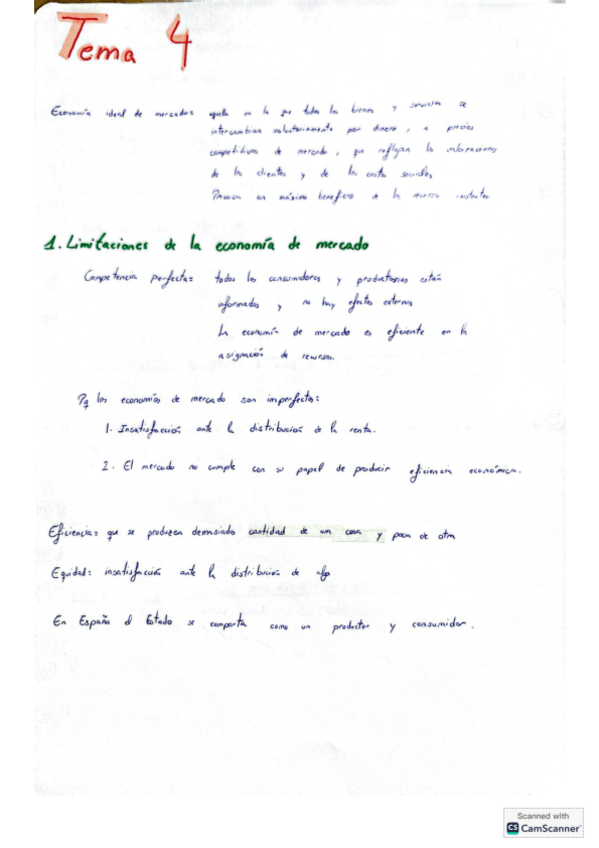 Tema 4
Economía ideal de mercados aquella en la que todos los bienes y servicios se
intercambian voluntariamente por dinero, a precios
competitivos de mercado, que reflejan las valoraciones
de los clientes y de los costes sociales
máximo beneficio de los recursos
1. Limitaciones de la economía de mercado
Competencia perfecta: todos los consumidores y productores están
informados y no hay efectos externos
La economía de mercado es eficiente en la
asignación de recursos.
Pq las economías de mercado son imperfectas:
1. Insatisfacción ante la distribución de la renta.
2. El mercado no cumple con su papel de producir eficiencia económica.
Eficiencia: que se produzca demasiado cantidad de un cosa y poca de otra
Equidad: insatisfacción ante la distribución de algo
En España el Estado se comporta como un productor y consumidor.
Scanned with
CS CamScanner